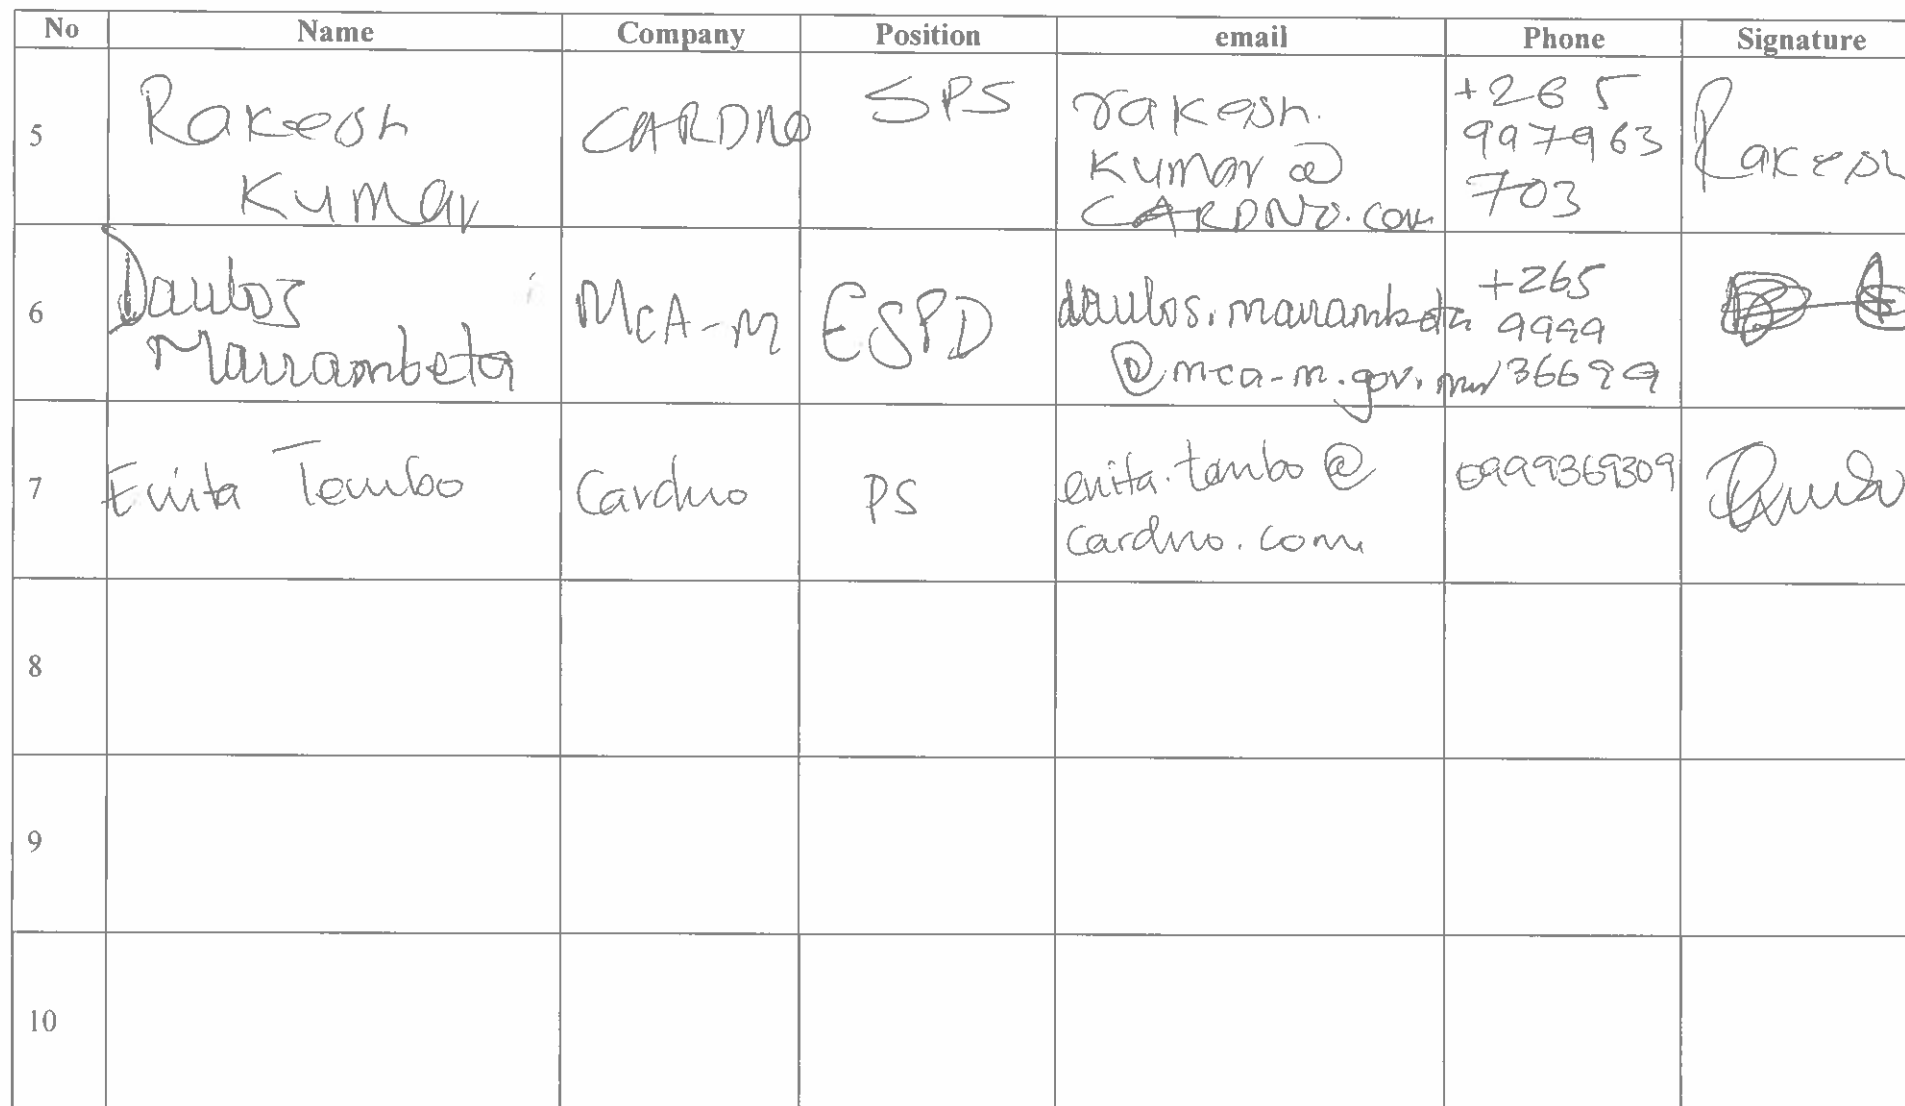 No Name Company Position email Phone Signature
5 Rakesh Kumar CARDNO SPS rakesh.kumar@CARDNO.com +265 997963 703 Rakesh
6 Daulos Mauambeta MCA-M ESPD daulos.mauambeta@mca-m.gov.mw +265 9999 36699
7 Enita Tembo Cardno PS enita.tembo@cardno.com 0999369309
8
9
10